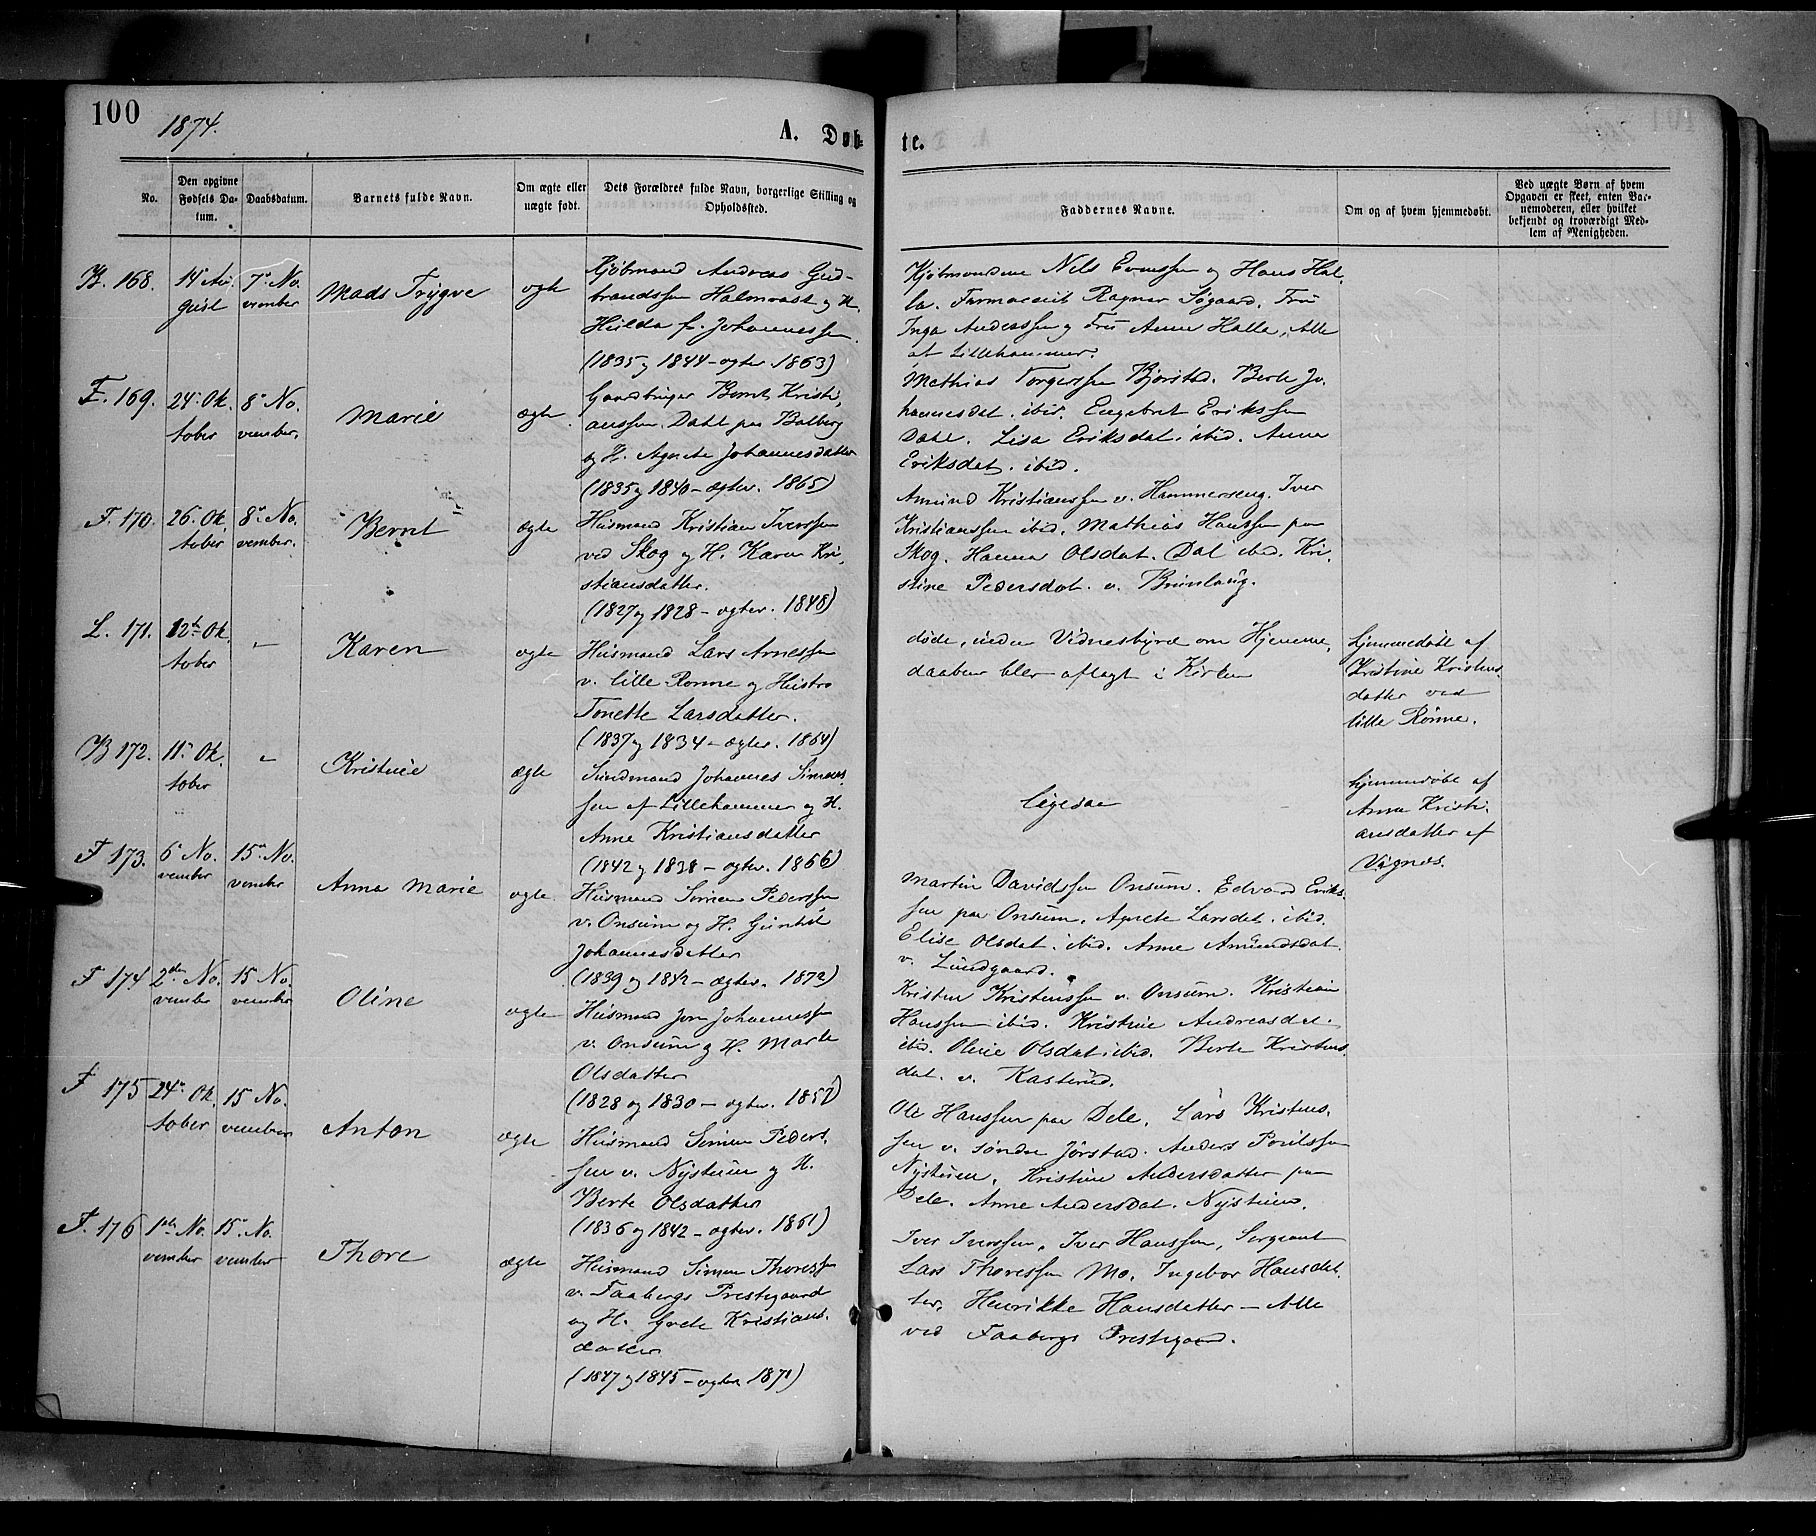 100
1874.
A. Døb-
te.
No.
Den opgivne Fødsels Da-
tum.
Daabsdatum.
Barnets fulde Navn.
Om ægte eller
uægte født.
Dets Forældres fulde Navn, borgerlige Stilling og
Opholdssted.
Faddernes Navne.
Om og af hvem hjemmedøbt.
Ved uægte Børn af hvem
Opgaven er skeet, enten Bar-
nemoderen, eller hvilket
bekjendt og troværdigt Med-
lem af Menigheden.
B. 168.
14de Au-
gust
7de No-
vember
Mads Trygve
ægte
Kjøbmand Andreas Gud-
brandssen Halmrast og H.
Hulda f. Johannessen.
(1835 og 1844 - ægtev. 1863)
Kjøbmændene Nils Evenssen og Hans Hal-
la. Farmaceut Ragnar Søgaard. Fru
Inga Andreassen og Fru Anne Halla, Alle
af Lillehammer.
F. 169.
24de Ok-
tober
8de No-
vember.
Marie
ægte.
Gaardbruger Bernt Kristi-
anssen Dahl paa Balberg
og H. Agnete Johannesdatter
(1835 og 1840 - ægtev. 1865)
Mathias Torgerssen Bjørstad. Berte Jo-
hannesdat. ibid. Engebret Erikssen
Dahl. Lisa Eriksdat. ibid. Anne
Eriksdat. ibid.
F. 170.
26. Ok-
tober
8de No-
vember.
Bernt
ægte
Husmand Kristian Iverssen
ved Skog og H. Karen Kri-
stiansdatter.
(1827 og 1828 - ægtev. 1848)
Amund Kristianssen v. Hammerseng. Iver
Kristianssen ibid. Mathias Hanssen paa
Skog. Hanna Olsdat. Dal ibid. Kri-
stine Pedersdat. v. Brunlaug.
L. 171.
12te Ok-
tober
"
Karen
ægte
Husmand Lars Arnessen
v. lille Rønne og Hustro
Tonette Larsdatter.
(1837 og 1834 - ægtev. 1864)
døde, inden Vidnesbyrd om Hjemme-
daaben blev aflagt i Kirken
hjemmedøbt af
Kristine Kristens-
datter ved
lille Rønne.
B 172.
11te Ok-
tober
"
Kristine
ægte
Sundmand Johannes Simens-
sen af Lillehammer og H.
Anne Kristiansdatter
(1842 og 1838 - ægtev. 1866)
ligesaa
hjemmedøbt af
Anna Kristi-
ansdatter af
Vignes.
F 173.
6te No-
vember
15de No-
vember
Anna Marie
ægte.
Husmand Simen Pederssen
v. Onsum og H. Gunhil
Johannesdatter
(1839 og 1842 - ægtev. 1872)
Martin Davidssen Onsum. Edvard Eriks-
sen paa Onsum. Agnete Larsdat. ibid.
Elise Olsdat. ibid. Anne Amundsdat.
v. Lundgaard.
F 174
2den No-
vember
15 No-
vember
Oline
ægte
Husmand Jon Johannessen
v. Onsum og H. Marte
Olsdatter
(1828 og 1830 - ægtev. 1857)
Kristen Kristenssen v. Onsum. Kristian
Hanssen ibid. Kristine Andreasdat.
ibid. Oline Olsdat ibid. Berte Kristens-
dat. v. Kasterud.
F 175
24de Ok-
tober
15 No-
vember
Anton
ægte
Husmand Simen Peders-
sen v. Nystuen og H.
Berte Olsdatter
(1836 og 1842 - ægtev. 1861)
Ole Hanssen paa Dele. Lars Kristens-
sen v. søndre Jørstad. Anders Poulssen
Nystuen. Kristine Andersdatter paa
Dele. Anne Andersdat. Nystuen.
F. 176
1ste No-
vember
15de No-
vember
Thore
ægte
Husmand Simen Thoressen
v. Faabergs Prestegaard
og H. Grete Kristians-
datter
(1847 og 1845 - ægtev. 1871)
Iver Iverssen, Iver Hanssen, Sergeant
Lars Thoressen Mo. Ingebor Hansdat-
ter, Henrikke Hansdatter - Alle
ved Faabergs Prestegaard.